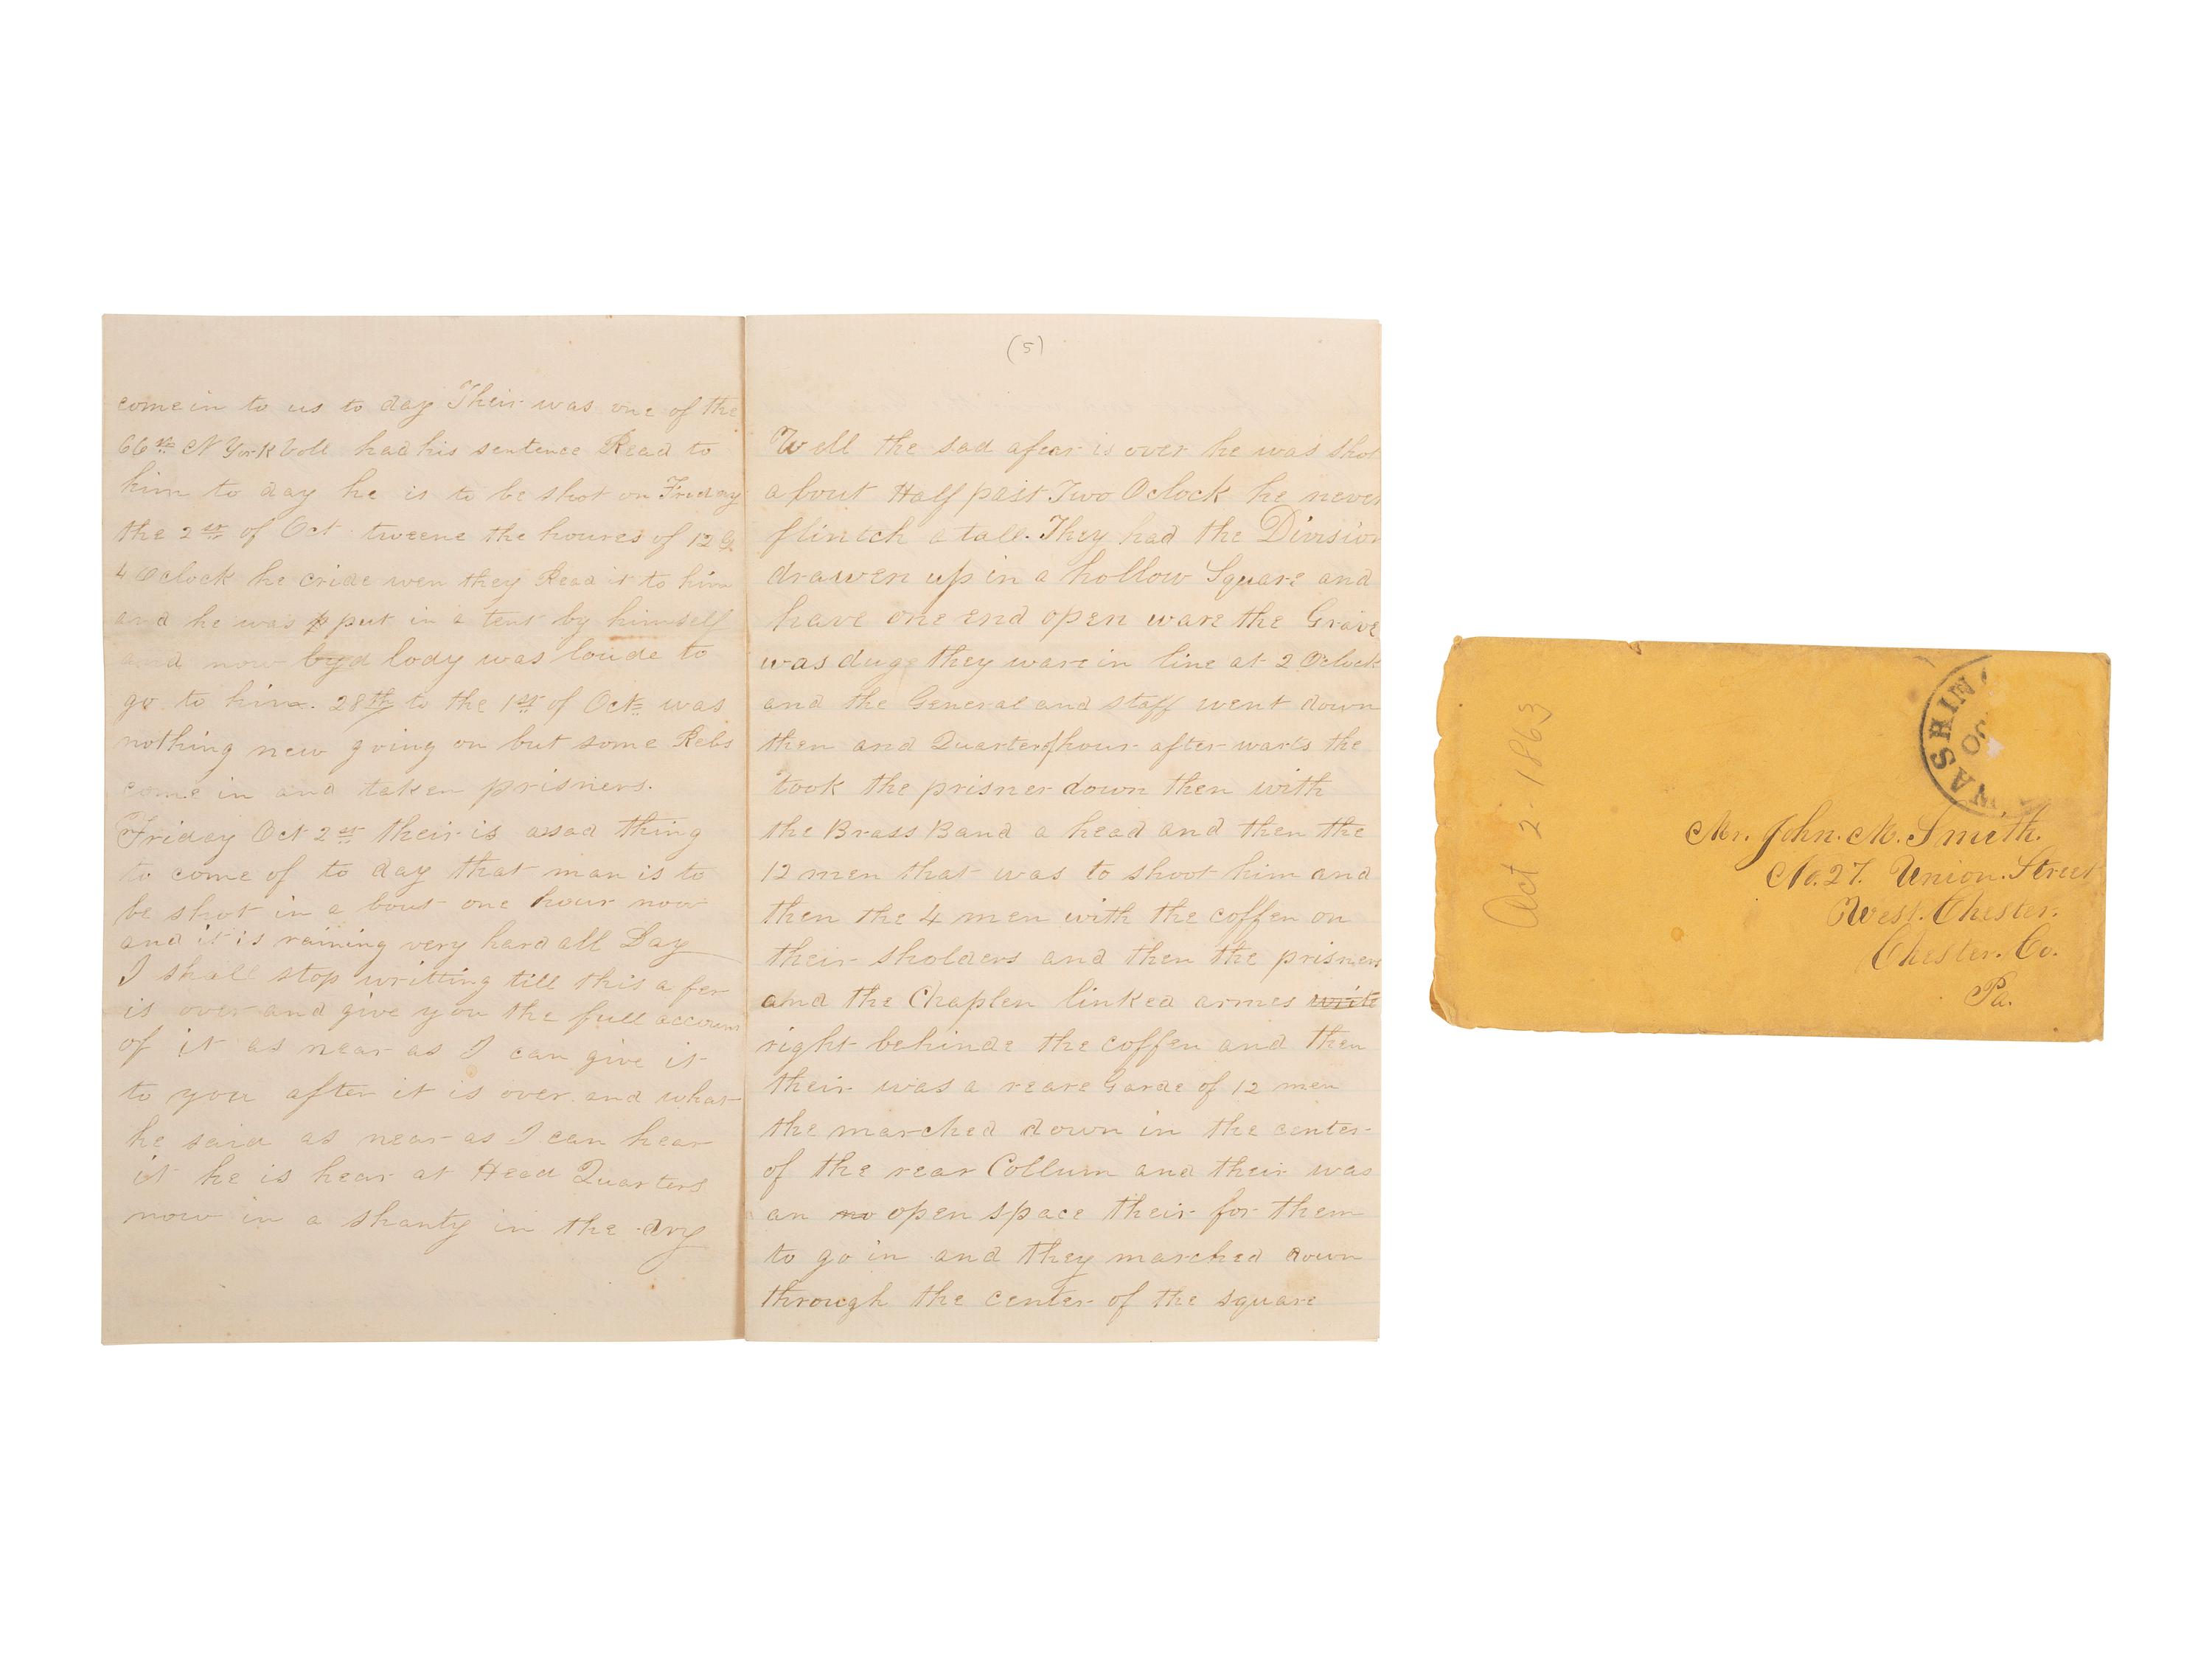 come in to us to day Their was one of the
66th N York Voll had his sentence Read to
him to day he is to be shot on Friday
the 2st of Oct tweene the houres of 12 &
4 Oclock he cride wen they Read it to him
and he was p put in a tent by himself
and now byd lody was loude to
go to him. 28th to the 1st of Oct was
nothing new going on but some Rebs
come in and taken prisners.
Friday Oct 2st their is a sad thing
to come of to day that man is to
be shot in a bout one hour now
and it is raining very hard all Day
I shall stop writting till this a fer
is over and give you the full account
of it as near as I can give it
to you after it is over and what
he said as near as I can hear
it he is hear at Head Quarters
now in a shanty in the dry
(5)
Well the sad afear is over he was shot
about Half past Two Oclock he never
flintch a tall. They had the Division
drawen up in a hollow Square and
have one end open ware the Grave
was dug they ware in line at 2 Oclock
and the General and staff went down
then and Quarter of hour after warts the
took the prisner down then with
the Brass Band a head and then the
12 men that was to shoot him and
then the 4 men with the coffen on
their sholders and then the prisner
and the Chaplen linked armes write
right behinde the coffen and then
their was a reare Garde of 12 men
the marched down in the center
of the rear Collum and their was
an no open space their for them
to go in and they marched down
through the center of the square
Oct 2-1863
WASHIN
OC
Mr. John. M. Smith.
No. 27. Union. Street
West. Chester.
Chester. Co.
Pa.